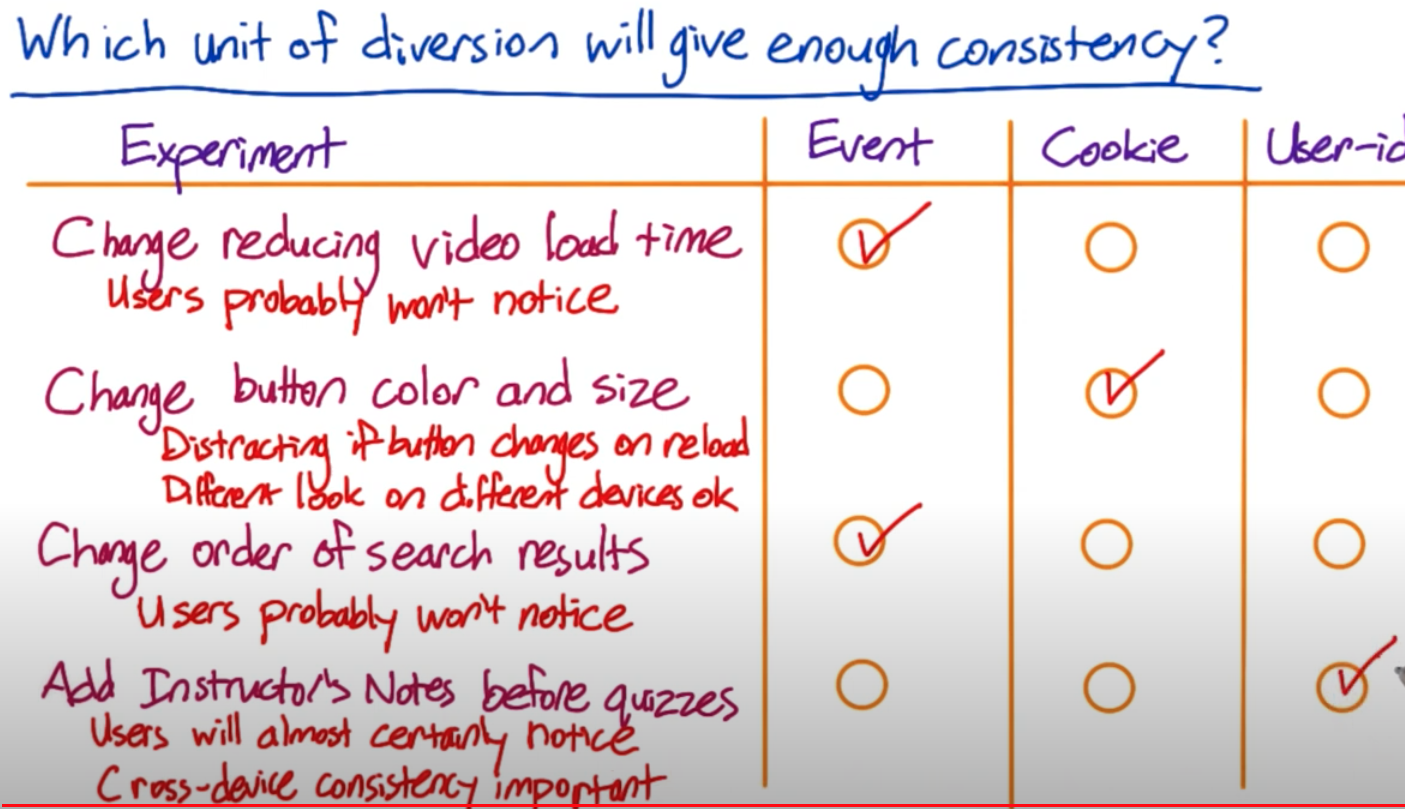 Which unit of diversion will give enough consistency?
Experiment Event Cookie User-id
Change reducing video load time
Users probably won't notice
Change button color and size
Distracting if button changes on reload
Different look on different devices ok
Change order of search results
Users probably won't notice
Add Instructor's Notes before quizzes
Users will almost certainly notice
Cross-device consistency important